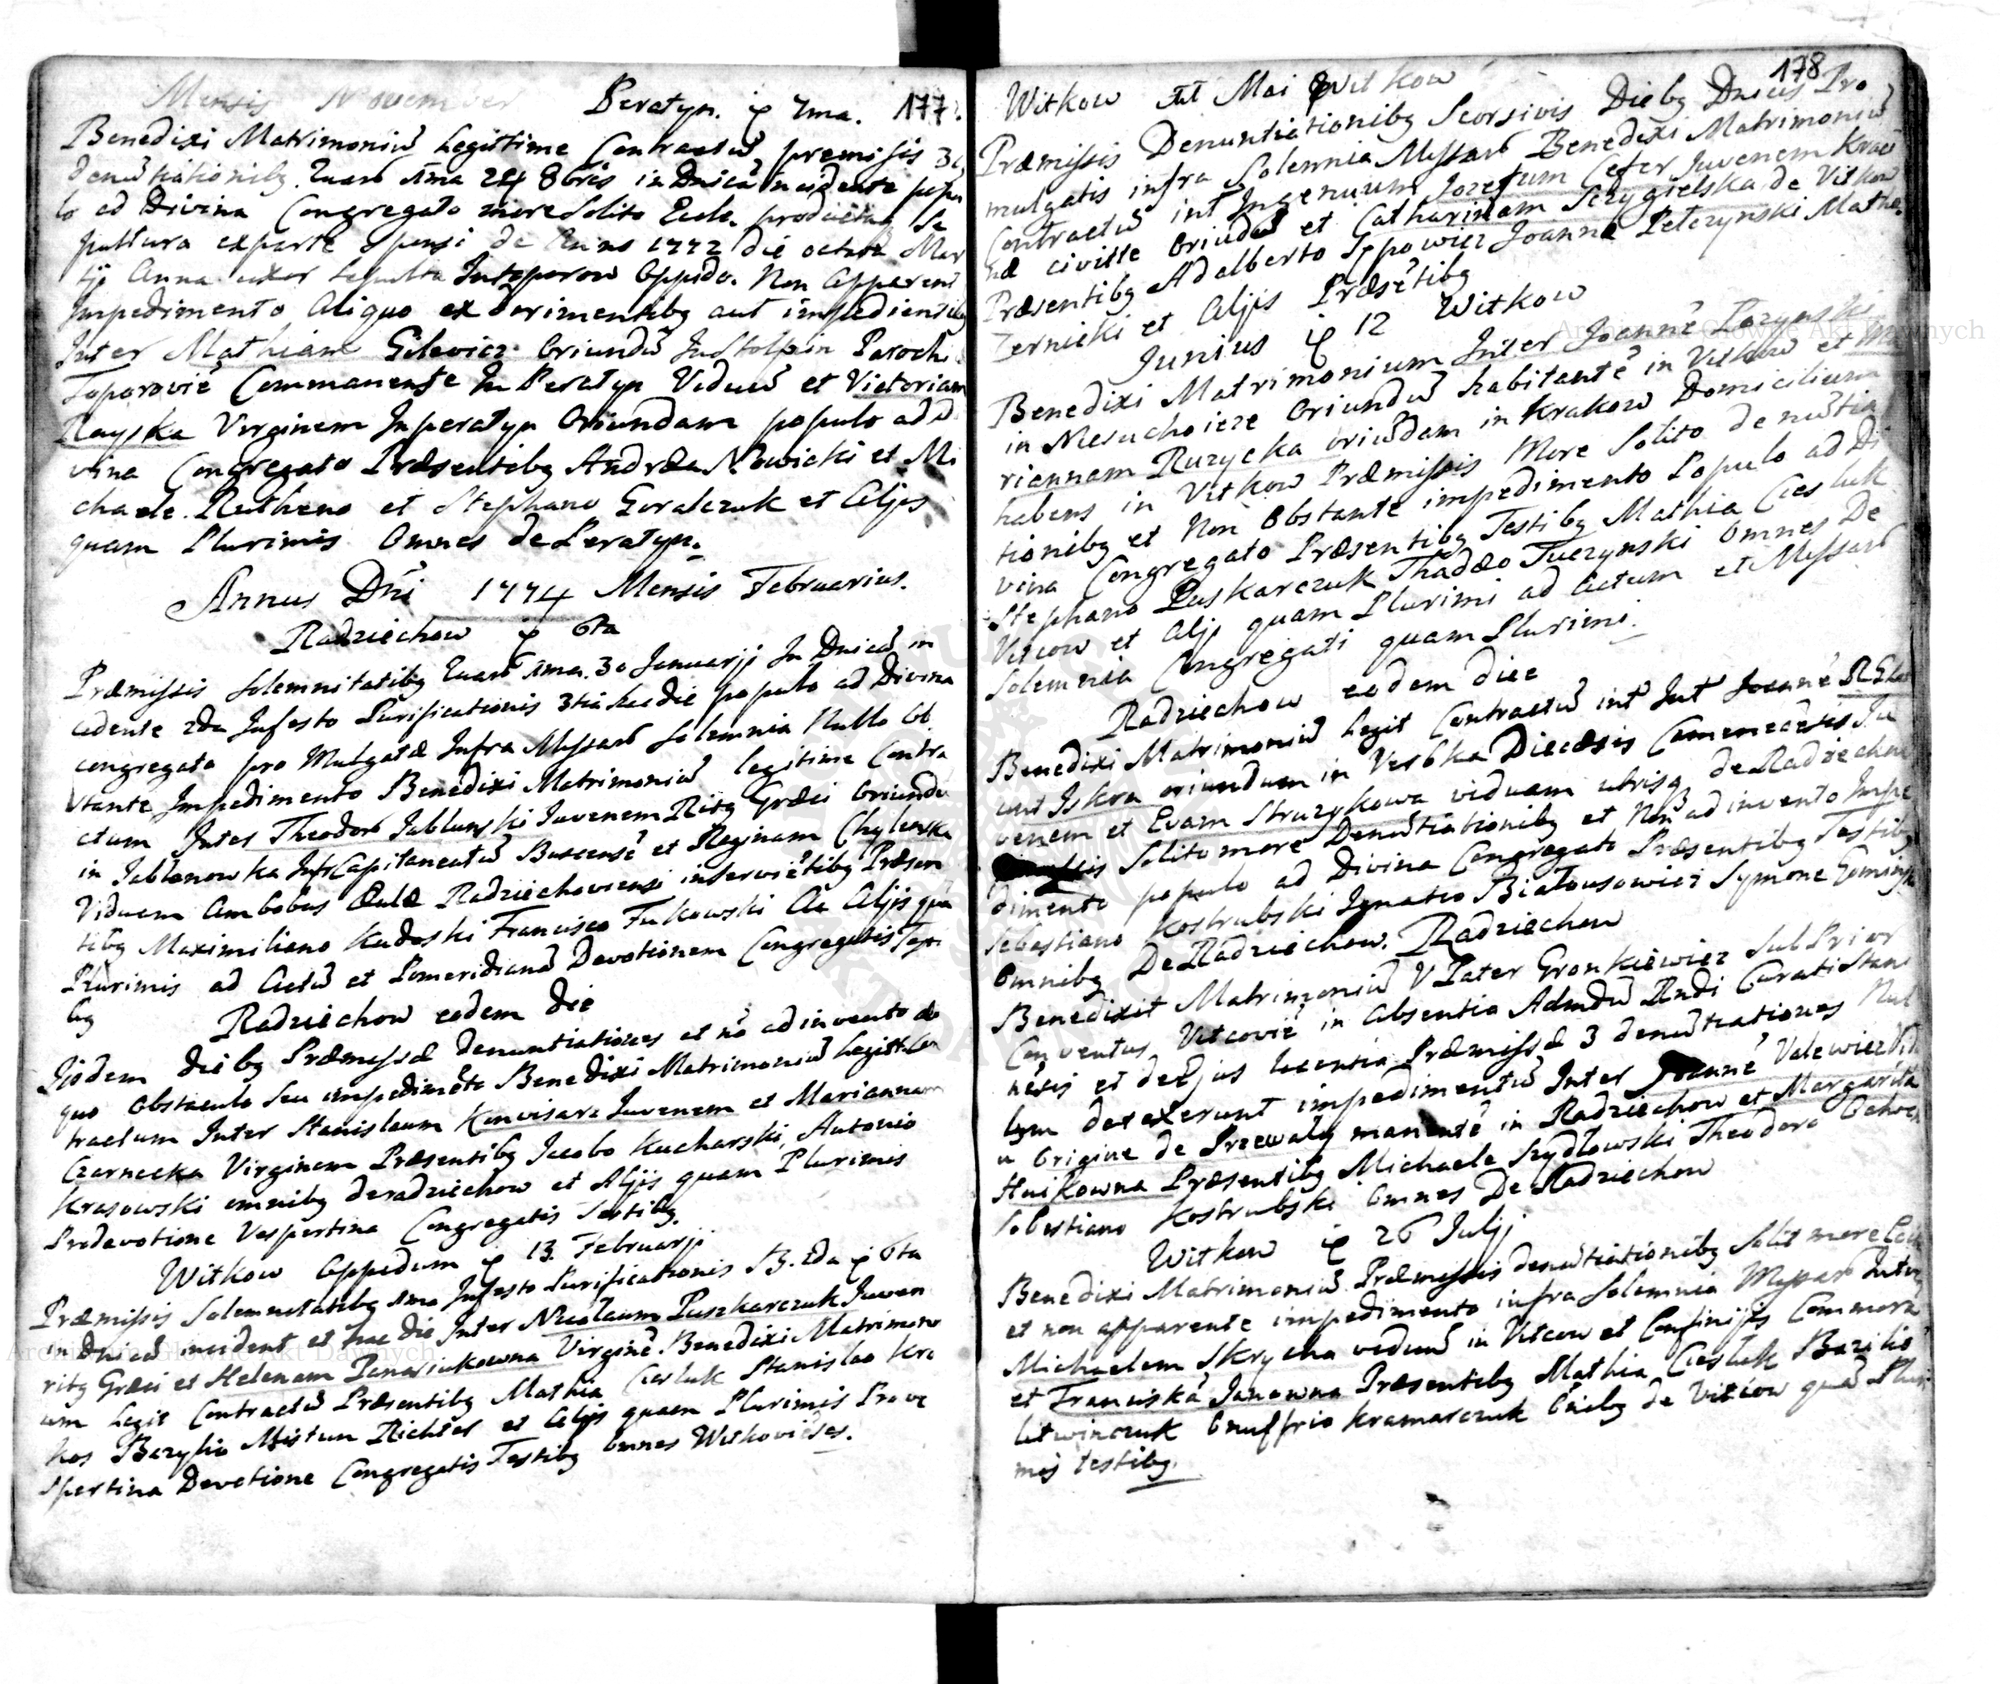 Mensis November Peratyn. 7ma. 177
Benedixi Matrimoniū Legittime Contractū premisis 3
denūtiationibg. Quarū 1ma 24 8bris in Dnicā incidente popu
lo ad Divina Congregato more Solito Eccle. Se
pultura exparte sponsi de Anno 1772 die octava Mar
tji Anna uxor sepulta Oppido. Non Apparent
Impedimento Aliquo ex dirimentibg aut impedientibg
Inter Mathiam Gilewicz Oriundū In Stolpin Parochi
Toporovie Commanente In Peratyn Viduū et Victoriam
Rayska Virginem Inperatyn Oriundam populo ad d
vina Congregato Præsentibg Andræa Nowicki et Mi
chaele Rutheno et Stephano Goralczuk et Alijs
quam Plurimis Omnes de Peratyn.
Annus Dni 1774 Mensis Februarius.
Radziechow 6ta
Præmissis Solemnitatibg Quarū 1ma. 30 Januarij In Dnicā in
cedente 2da Infesto Purificationis 3tia hacdie populo ad Divina
congregato pro Mulgatæ Infra Missarū Solemnia Nullo Ob
stante Impedimento Benedixi Matrimoniū legitime Contra
ctum Inter Theodorū Jablunski Juvenem Ritg Græci Oriundū
in Jablonowka Capitaneatū Buscensē et Reginam Chylewska
Viduam Ambobus Aulæ Radziechoviensi inservietibg Præsen
tibg Maximiliano Kudoski Francisco Fukowski Ac Alijs quā
Plurimis ad Actū et Pomeridianā Devotionem Congregatis Testi
bg Radziechow eodem die
Ijsdem diebg Præmissæ denuntiationes et nō adinvento ali
quo Obstaculo seu impedimēto Benedixi Matrimoniū legitt. Con
tractum Inter Stanislaum Konvisarz Juvenem et Mariannam
Czarnecka Virginem Præsentibg Jacobo Kucharski, Antonio
Krasowski omnibg deradziechow et Alijs quam Plurimis
Prodevotione Vespertina Congregatis Testibg.
Witkow Oppidum 13 Februarij
Præmissis Solemnitatibg 1ma Infesto Purificationis B. 2da 6ta
in Dnicā incident et hac die Inter Nicolaum Puszkarczuk Juven
ritg Græci et Helenam Panasiukowna Virginē. Benedixi Matrimoni
um legit Contractū Præsentibg Mathia Ciesluk Stanislao Kra
kos Bazylio Mistun Richter et Alijs quam Plurimis Prove
spertina Devotione Congregatis Testibg Omnes Witkoviēses.
178
Witkow Mai Witkow
Præmissis Denuntiationibg Seorsivis Diebg Dnicis Pro
mulgatis infra Solemnia Missarū Benedixi Matrimoniū
Contractū int Ingenuum Jozefum Cefer Juvenem
civitte Oriundū et Catharinam Sczygielska de Vitkow
Præsentibg Adalberto Joanne Pełczynski Mathe
Zernicki et Alijs Præsētibg
Junius 12 Witkow
Benedixi Matrimonium Inter Joannē Lozynski
in Meruchoicze Oriundū habitantē in Vitkow et Ma
riannam Ruzycka oriūdam in Krakow Domicilium
habens in Vitkow Præmissis More Solito denūtia
tionibg et Non Obstante impedimento Populo ad Di
vina Congregato Præsentibg Testibg Mathia Ciesluk
Stephano Puskarczuk Thadæo Tuczynski Omnes De
Vitcow et Alij quam Plurimi ad Actum et Missarū
Solemnia Congregati quam Plurimi.
Radziechow eodem die
Benedixi Matrimoniū legit Contractū int Joannē
Iskra oriundum in Verbka Diecæsis Camenecēsis Ju
venem et Evam Struzykowa viduam utrisq de Radziechow
Solito more Denūtiationibg et Non adinvento Impe
dimento populo ad Divina Congregato Præsentibg Testibg
Sebastiano Kostrubski Ignatio Białousowicz Symone
Omnibg De Radziechow. Radziechow
Benedixit Matrimoniū V Pater Gronkiewicz Sub Prior
Conventus Vitcoviē in Absentia Admdū Rndi Curati Stani
et de Ejus licentia Præmissæ 3 denūtiationes Nul
lum detexerunt impedimentū Inter Joannē Valewicz Vid
Origine de Przewaly manentē in Radziechow et Margarita
Præsentibg Michaele Szydłowski Theodoro
Sebestiano Kostrubski Omnes De Radziechow
Witkow 26 Julij
Benedixi Matrimoniū Præmissis denūtiationibg Solit more
et non apparente impedimento infra Solemnia Missar Inter
Michaelem Skrycha viduū in Vitcow et Confinijs Commora
et Franciskā Janowna Præsentibg Mathia Ciesluk Bazilio
Litwinczuk Onuffrio Kramarczuk Oñibg de Vitcow quā Pluri
mis testibg.